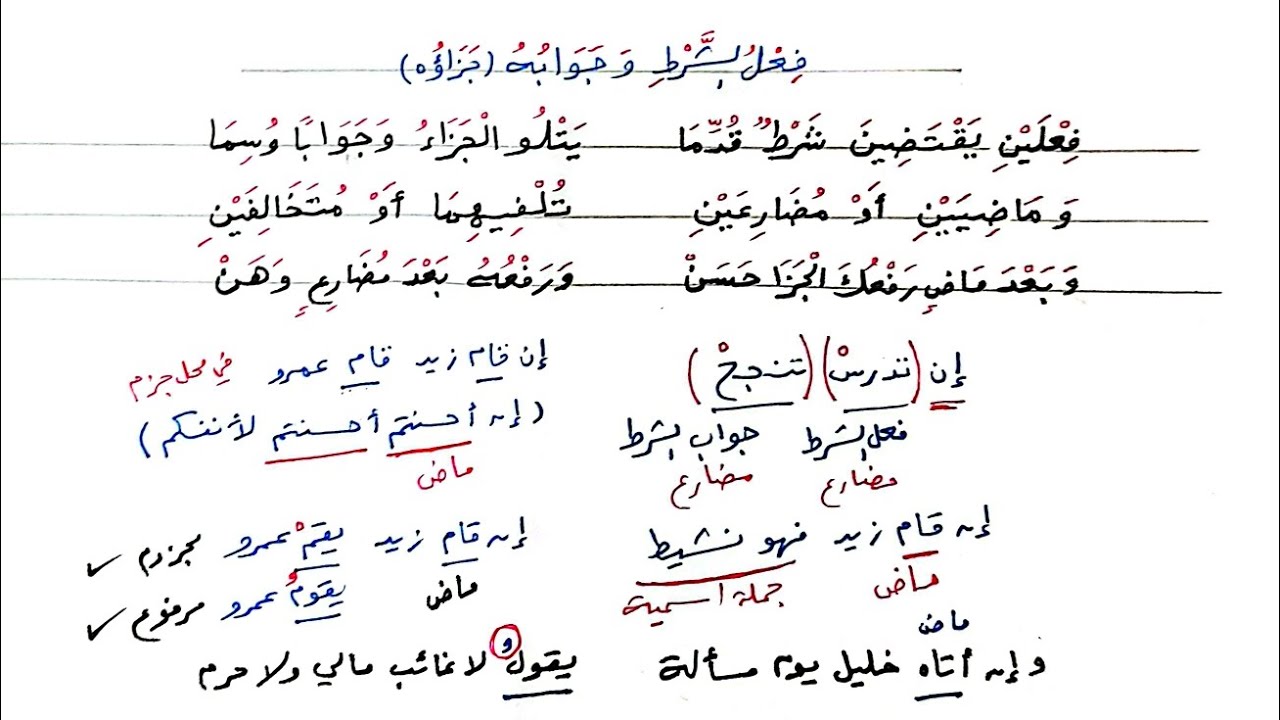 فِعْلُ الشَّرْطِ وَجَوَابُهُ (جَزَاؤُه)
فِعْلَيْنِ يَقْتَضِينَ شَرْطٌ قُدِّمَا يَتْلُو الْجَزَاءُ وَجَوَابًا وُسِمَا
وَمَاضِيَيْنِ أَوْ مُضَارِعَيْنِ تُلْفِيهِمَا أَوْ مُتَخَالِفَيْنِ
وَبَعْدَ مَاضٍ رَفْعُكَ الْجَزَا حَسَنْ وَرَفْعُهُ بَعْدَ مُضَارِعٍ وَهَنْ
إن (تدرسْ) (تنجحْ)
فعل الشرط جواب الشرط
مضارع مضارع
إن قام زيد قام عمرو في محل جزم
(إن أحسنتم أحسنتم لأنفسكم)
ماض
إن قام زيد فهو نشيط
ماض جملة اسمية
إن قام زيد يقمْ عمرو مجزوم ✓
ماض يقومُ عمرو مرفوع ✓
ماض
وإن أتاه خليل يوم مسألة يقولُ لا غائب مالي ولا حرم
و